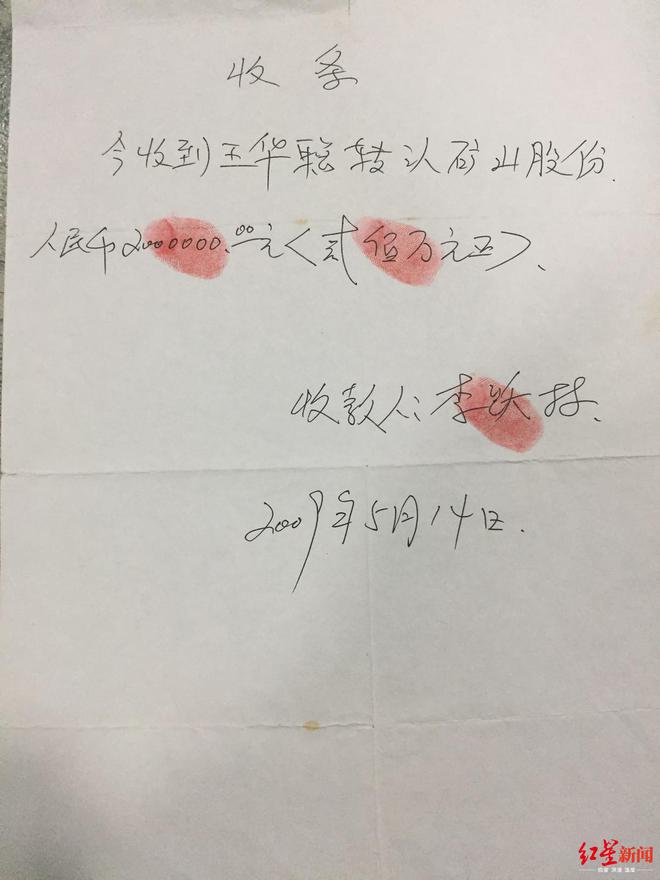 收条
今收到王华聪转认矿山股份.
人民币2000000.00元<贰佰万元正>、
收款人:李跃林.
2009年5月14日.
红星新闻